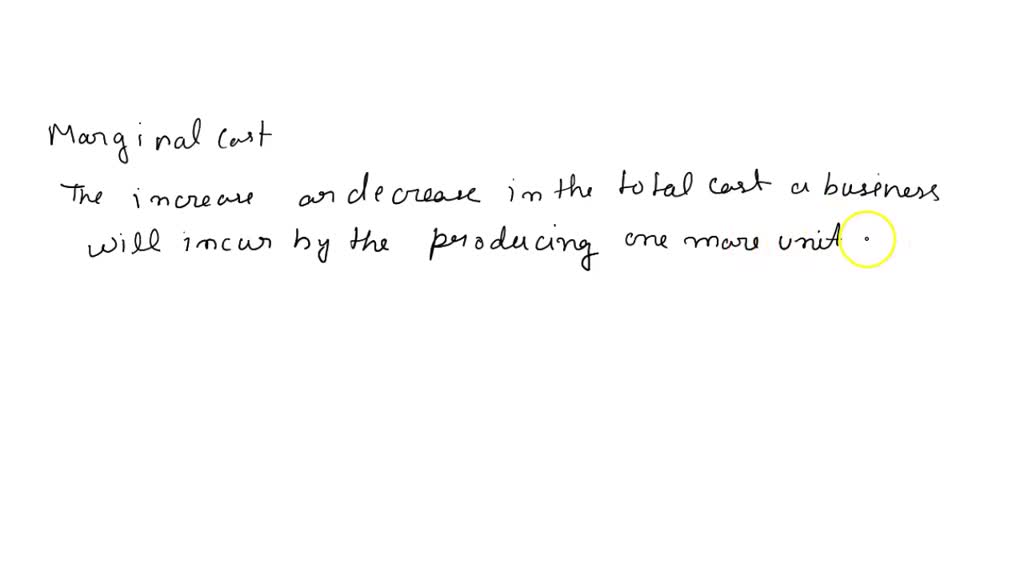 Marginal cost
The increase or decrease in the total cost a business
will incur by the producing one more unit.